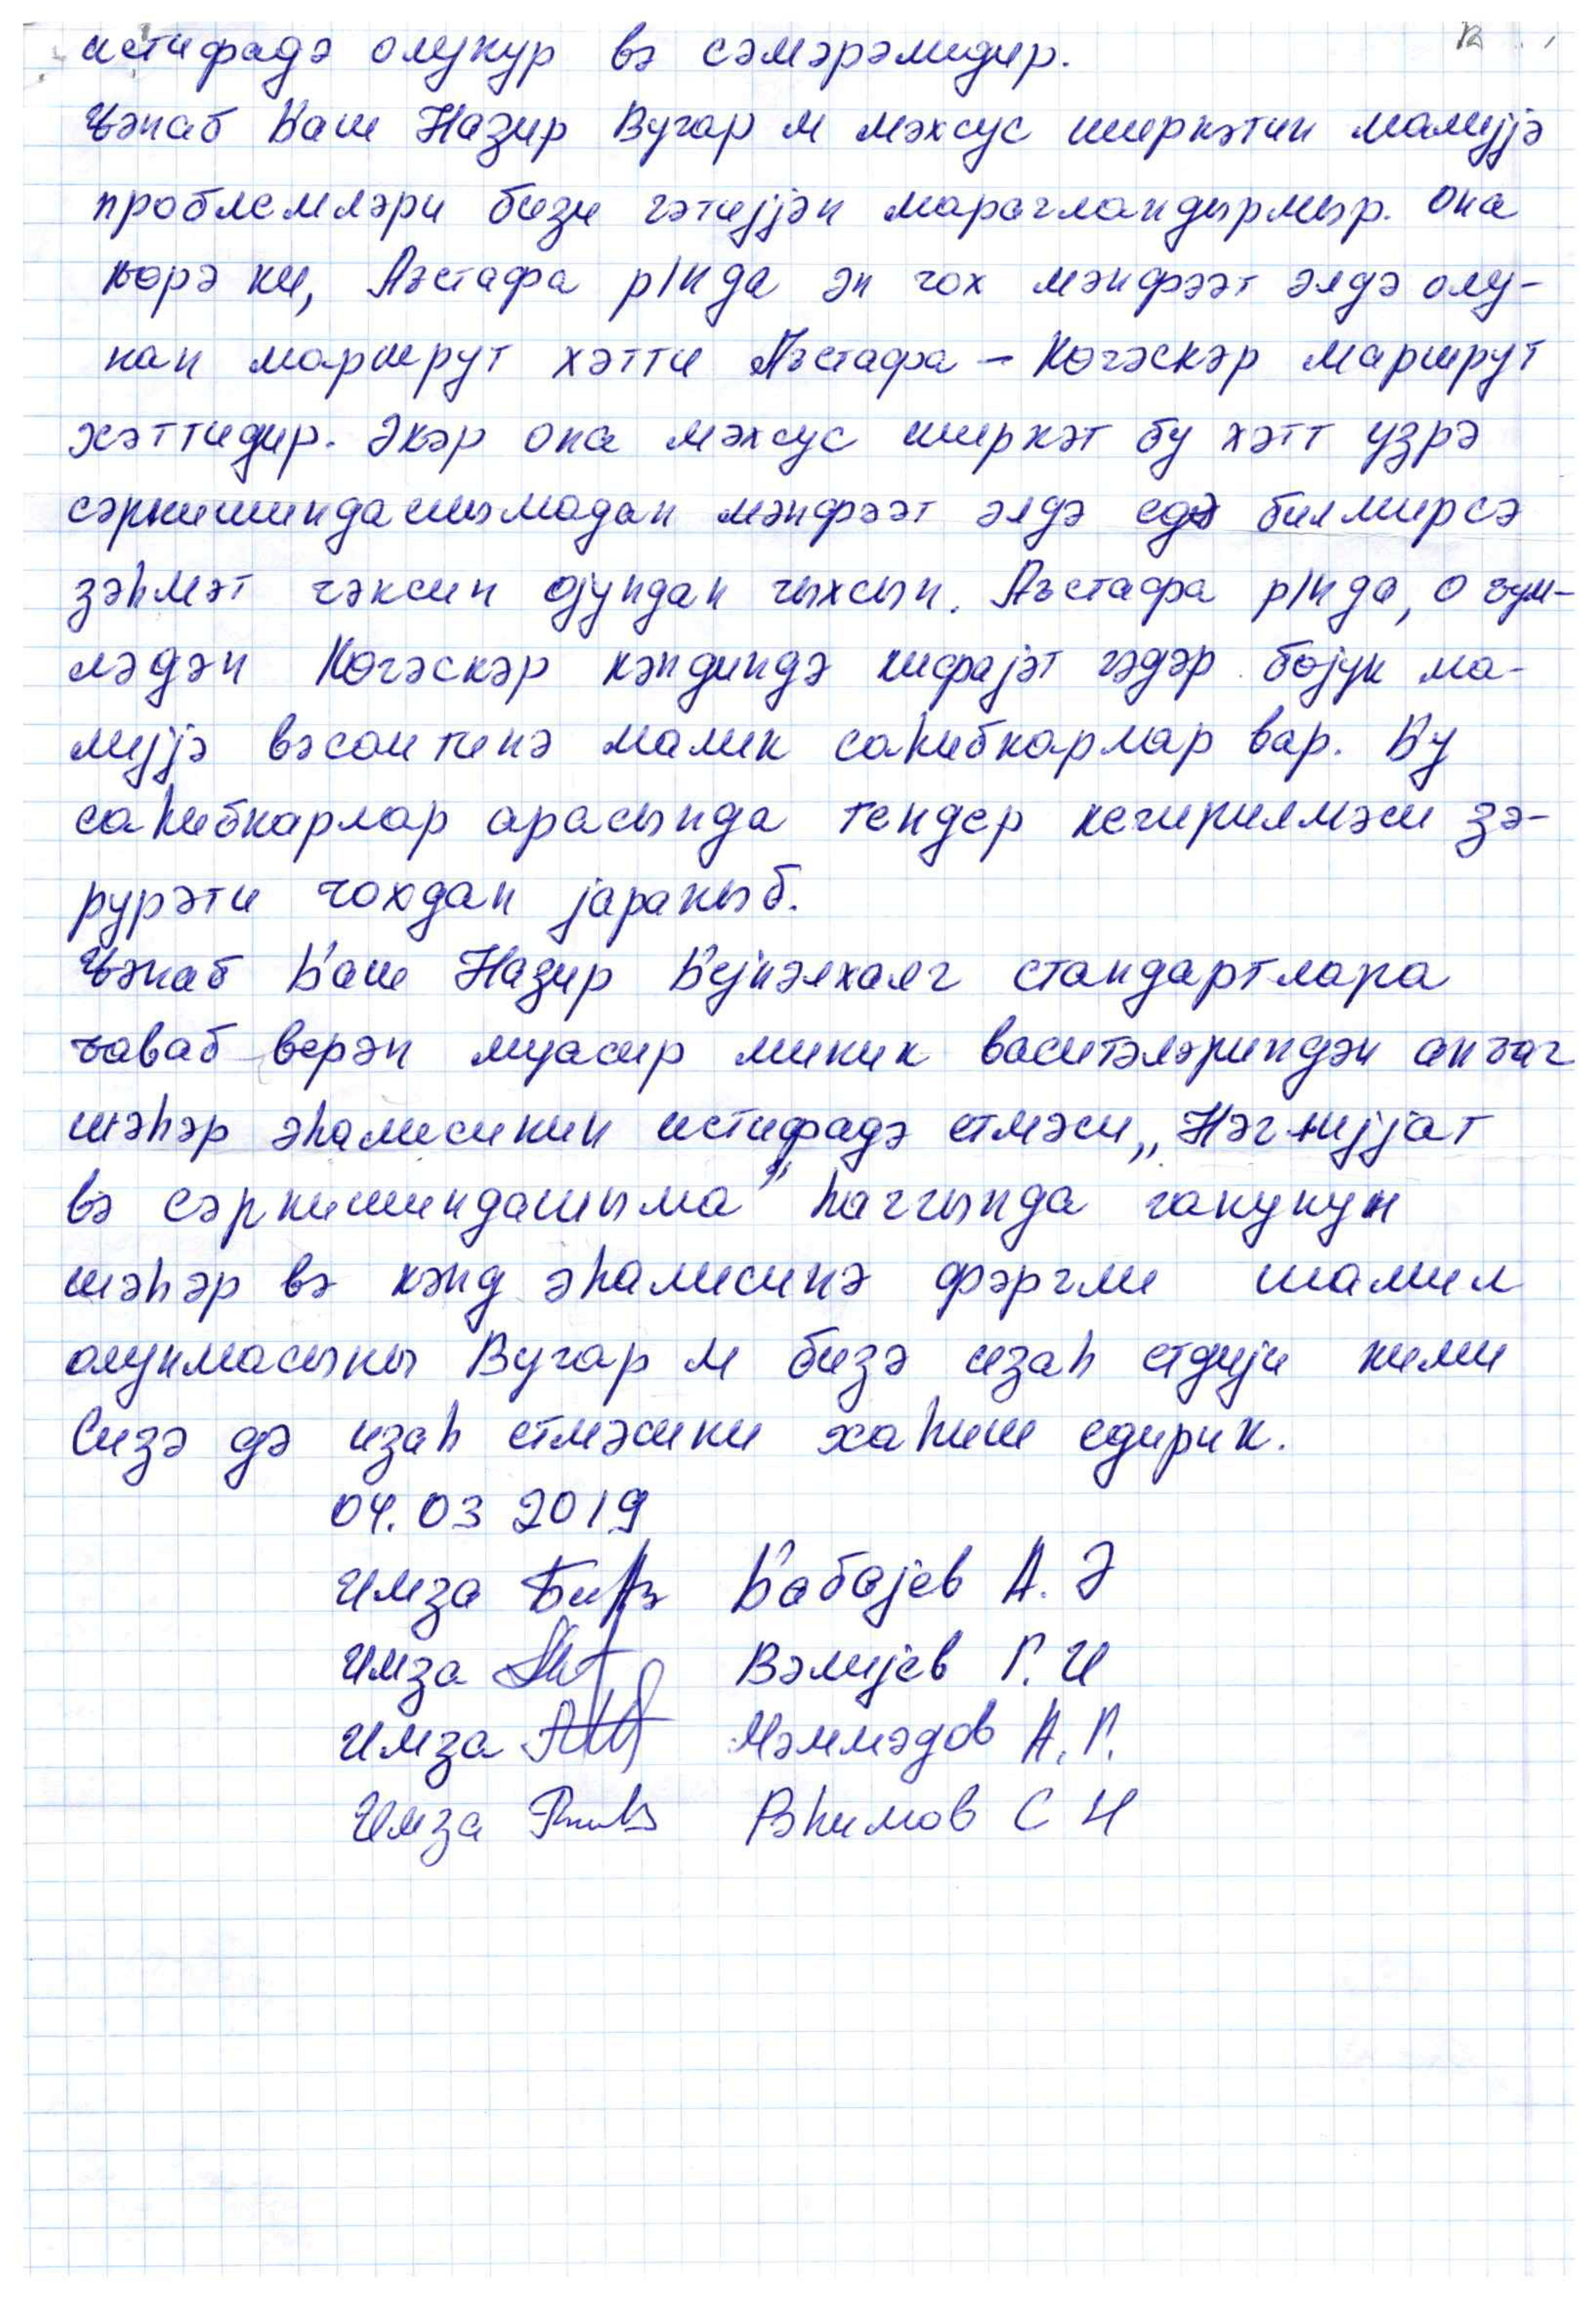 истифадә олунур вә сәмәрәлидир.
Ҹәнаб Баш Назир Вугар м мәхсус ширкәтин малијјә
проблемләри бизи гәтијјән марагландырмыр. Она
ҝөрә ки, Ағстафа р/нда ән чох мәнфәәт әлдә олу-
нан маршрут хәтти Ағстафа – Көчәскәр маршрут
хәттидир. Әҝәр она мәхсус ширкәт бу хәтт үзрә
сәрнишиндашымадан мәнфәәт әлдә едә билмирсә
зәһмәт чәксин ојундан чыхсын. Ағстафа р/нда, о ҹүм-
ләдән Көчәскәр кәндиндә кифајәт гәдәр бөјүк ма-
лијјә вәсаитинә малик саһибкарлар вар. Бу
саһибкарлар арасында тендер кечирилмәси зә-
рурәти чохдан јараныб.
Ҹәнаб Баш Назир Бејнәлхалг стандартлара
ҹаваб верән муасир миник васитәләриндән анҹаг
шәһәр әһалисинин истифадә етмәси, „Нәглијјат
вә сәрнишиндашыма" һаггында ганунун
шәһәр вә кәнд әһалисинә фәргли шамил
олунмасыны Вугар м бизә изаһ етдији кими
Сизә дә изаһ етмәсини хаһиш едирик.
04.03 2019
Имза Бабајев А. Ә
Имза Вәлијев Г. И
Имза Мәммәдов А. Г.
Имза Рәһимов С Н